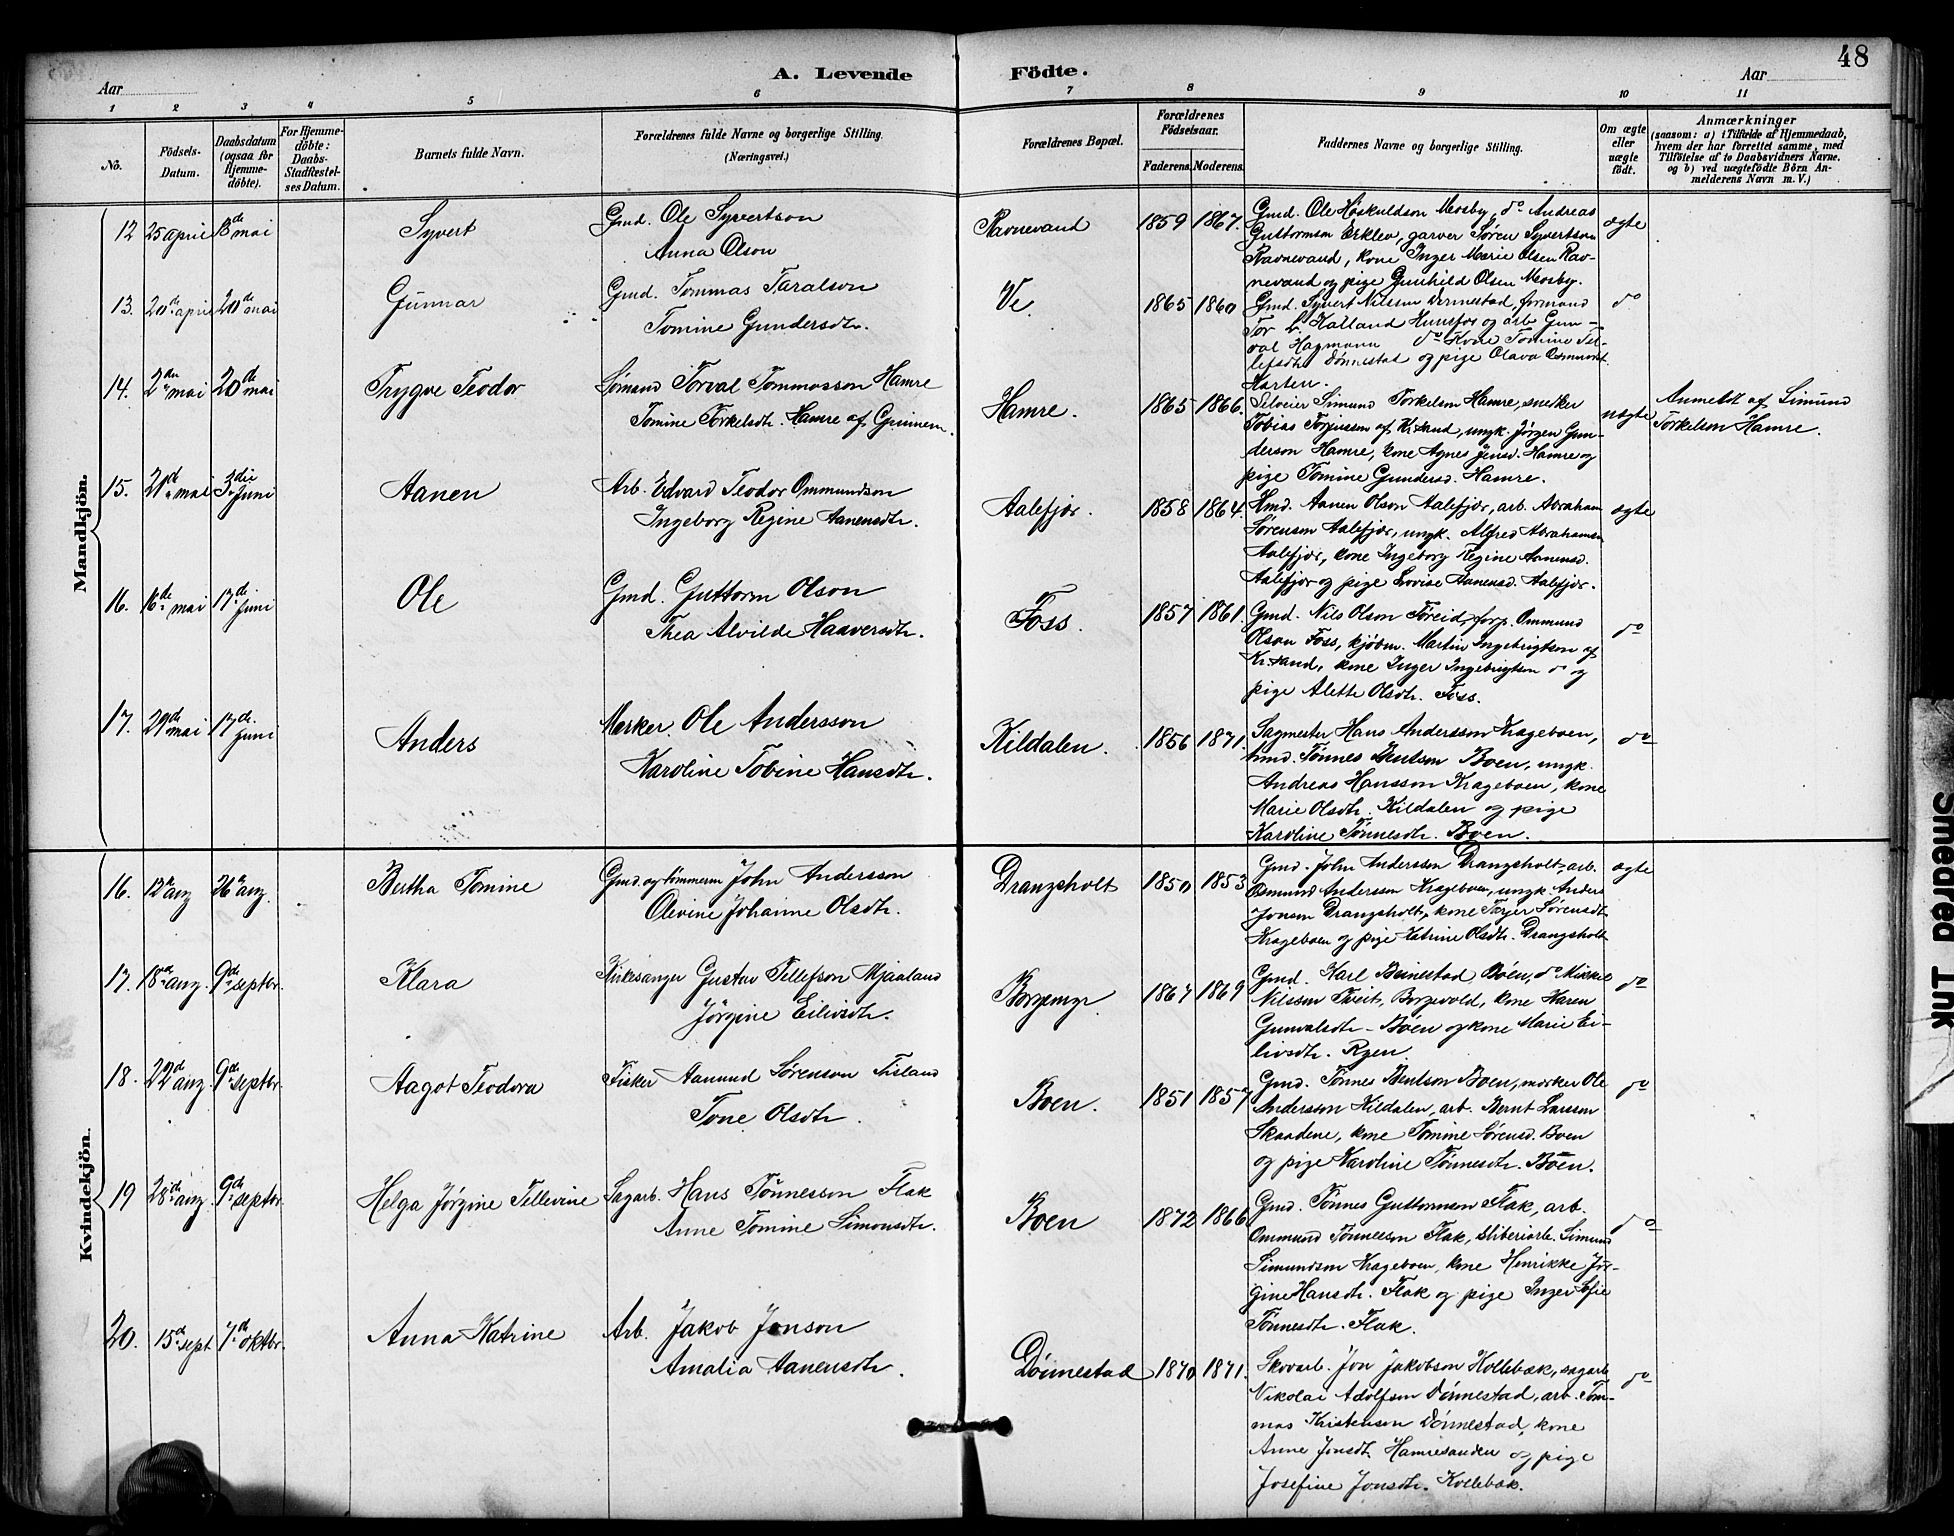 48
A. Levende Födte.
Aar
Aar
1 2 3 4 5 6 7 8 9 10 11
No.
Födsels-Datum.
Daabsdatum (ogsaa for Hjemmedöbte).
For Hjemmedöbte: Daabs-Stadfæstelses Datum.
Barnets fulde Navn.
Forældrenes fulde Navne og borgerlige Stilling. (Næringsvei.)
Forældrenes Bopæl.
Forældrenes Födselsaar.
Faderens. Moderens.
Faddernes Navne og borgerlige Stilling.
Om ægte eller uægte födt.
Anmærkninger
(saasom: a) i Tilfælde af Hjemmedaab,
hvem der har forrettet samme, med
Tilföielse af to Daabsvidners Navne.
og b) ved uægtefödte Börn An-
melderens Navn m. V.)
Mandkjön.
12 25 april 13de mai Syvert
Gmd. Ole Syvertson
Anna Olson
Ravnevand 1859 1867.
Gmd. Ole Høskuldson Mosby, do Andreas
Guttormsen Erklev, garver Søren Syvertsen
Ravnevand, kone Inger Marie Olsen Rav-
nevand og pige Gunhild Olsen Mosby.
ægte
13. 20de april 20de mai Gunnar
Gmd. Tommas Taralson
Tomine Gundersdtr.
Ve. 1865 1860
Gmd. Syvert Nilsson Dønnestad, formand
Tor L. Halland Hunsfos og arb. Gun-
val Hagmann do Kone Tomine Tel-
lefsdtr Dønnestad og pige Olava
Karten.
do
14. 2den mai 20de mai Trygve Teodor
Sømand Torval Tommasson Hamre
Tomine Torkelsdtr. Hamre af Grinnem.
Hamre. 1865 1866.
Selveier Simund Torkelson Hamre, snekker
Tobias Torjussen af Kr.sand, ungk. Jørgen Gun-
derson Hamre, kone Agnes Jensd. Hamre og
pige Tomine Gundersd. Hamre.
uægte
Anmeldt af Simund
Torkelson Hamre.
15. 21de mai 3die Juni Aanen
Arb. Edvard Teodor Ommundson
Ingeborg Regine Aanensdtr.
Aalefjær. 1858 1864.
Hmd. Aanen Olson Aalefjær, arb. Abraham
Sørensen Aalefjær, ungk. Alfred Abrahamsen
Aalefjær, kone Ingeborg Regine Aanensd.
Aalefjær og pige Lovise Aanensd. Aalefjær.
ægte
16. 16de mai 17de juni Ole
Gmd. Guttorm Olson
Thea Alvilde Haaversdtr.
Foss. 1857 1861.
Gmd. Nils Olson Føreid, forp. Ommund
Olson Foss, kjøbm. Martin Ingebrigtsen af
Kr.sand, kone Inger Ingebrigtsen do og
pige Alette Olsdtr. Foss.
do
17. 29de mai 17de juni Anders
Merker Ole Andersson
Karoline Tobine Hansdtr.
Kildalen. 1856 1871.
Sagmester Hans Andersson Krageboen,
hmd. Tønnes Bentson Boen, ungk.
Andreas Hansson Krageboen, kone
Marie Olsdtr. Kildalen og pige
Karoline Tønnesdtr. Boen.
do
Kvindekjön.
16. 12te aug 26de aug. Bertha Tomine
Gmd. og tømmerm John Andersson
Olevine Johanne Olsdtr.
Drangsholt 1850 1853
Gmd. John Andersson Drangsholt, arb.
Osmund Andersson Krageboen, ungk. Anders
Jonsen Drangsholt, kone Tarjer Sørensdtr
Krageboen og pige Katrine Olsdtr. Drangsholt
ægte
17. 18de aug. 9de septbr. Klara
Kirkesanger Gustav Tellefson Mjaaland
Jørgine Eilivsdtr.
Borgemyr 1867 1869
Gmd. Karl Beinestad Boen, do Mikkel
Nilsson Tveit, Borgevold, kone Karen
Gunvalsdtr Boen og kone Marie Ei-
livsdtr. Ryen.
do
18. 22d aug. 9de septbr. Aagot Teodora
Fisker Aanund Sørenson Tisland
Tone Olsdtr.
Boen. 1851 1857
Gmd. Tønnes Bentson Boen, merker Ole
Andersson Kildalen, arb. Bernt Larsson
Skaadene, kone Tomine Sørensd. Boen
og pige Karoline Tønnesdtr. Boen.
do
19 28de aug. 9de septbr Helga Jørgine Tellevine
Sagarb. Hans Tønnesson Flak
Anne Tomine Simonsdtr.
Boen 1872 1866
Gmd. Tønnes Guttormsen Flak, arb.
Ommund Tønnesson Flak, sliberiarb. Simund
Simundson Krageboen, kone Henrikke Jør-
gine Hansdtr. Flak og pige Inger Sofie
Tønnesdtr. Flak.
do
20. 15de sept 7de oktbr. Anna Katrine
Arb. Jakob Jonson
Amalia Aanensdtr.
Dønnestad 1870 1871.
Skovarb. Jon Jakobson Kollebæk, sagarb.
Nikolai Adolfsen Dønnestad, arb. Tom-
mas Kristensen Dønnestad, kone
Anne Jonsdtr. Hamresanden og pige
Josefine Jonsdtr. Kollebæk.
do
Smeared Ink